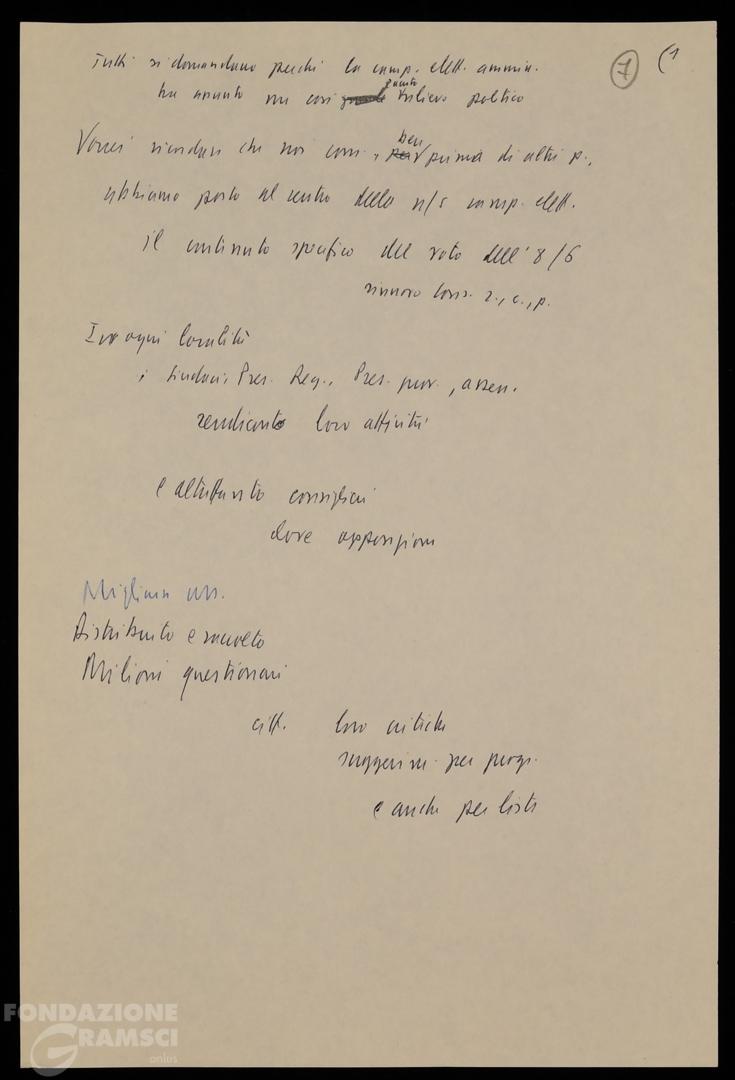 7 (1
Tutti si domandano perché la camp. elett. ammin.
ha assunto un così questo rilievo politico
Vorrei ricordare che noi com., ben prima di altri p.,
abbiamo posto al centro della n/s camp. elett.
il contenuto specifico del voto dell'8/6
rinnovo cons. r., c., p.
In ogni località
i sindaci, Pres. Reg., Pres. prov., assess.
rendiconto loro attività
e altrettanto consiglieri
dove opposizione
Migliaia
Distribuito e raccolto
Milioni questionari
citt. loro critiche
suggerim. per progr.
e anche per liste
FONDAZIONE
GRAMSCI
onlus